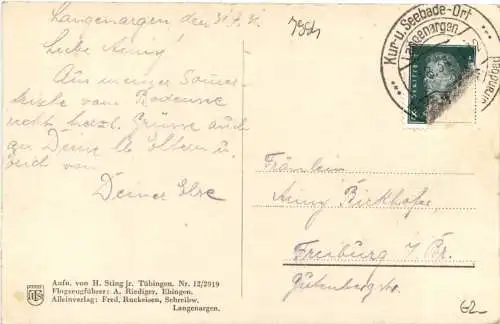 Langenargen den 31.7.31.
Liebe Anny!
Aus meiner Sommer-
frische vom Bodensee
recht herzl. Grüsse auch
an Deine lb. Eltern u.
Dich von
Deiner Else
Kur-u. Seebade-Ort
Langenargen
Fräulein
Anny Birkhofer
Freiburg i/Br.
Gutenbergstr.
Aufn. von H. Sting jr. Tübingen. Nr. 12/2919
Flugzeugführer: A. Riediger, Ehingen.
Alleinverlag: Fred. Ruckeisen, Schreibw.
Langenargen.
62-